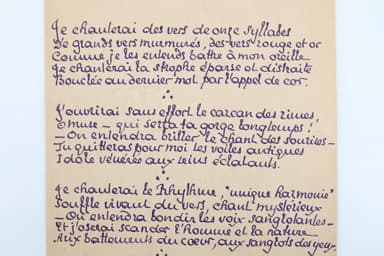 Je chanterai des vers de onze syllabes
De grands vers murmurés, des vers rouge et or
Comme je les entends battre à mon oreille
Je chanterai la strophe éparse et distraite
Bouclée au dernier mot par l'appel de cor.
J'ouvrirai sans effort le carcan des rimes,
O muse – qui serra ta gorge longtemps !
– On entendra briller le chant des sourires –
Tu quitteras pour moi les voiles antiques
Idole vénérée aux seins éclatants.
Je chanterai le Rhythme, "unique harmonie"
Souffle vivant du vers, chant mystérieux
– On entendra bondir les voix sanglotantes –
Et j'oserai scander l'homme et la nature
Aux battements du cœur, aux sanglots des yeux.